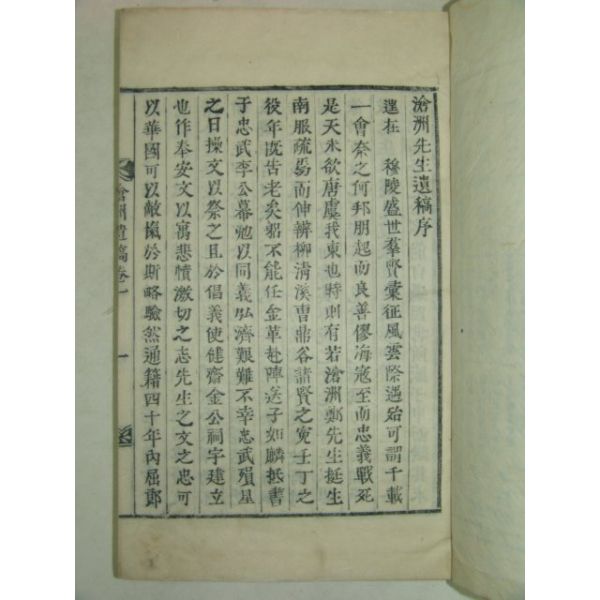 滄洲先生遺稿序
逞在 穆陵盛世羣賢彙征風雲際遇殆可謂千載
一會奈之何邦朋起而良善僇海寇至而忠義戰死
是天不欲唐虞我東也時則有若滄洲鄭先生挺生
南服疏爲而伸辨柳清溪曺鼎谷諸賢之寃壬丁之
役年旣告老矣貂不能任金革赴陣送子如麟抵書
于忠武李公幕勉以同義弘濟艱難不幸忠武殞星
之日操文以祭之且於倡義使健齋金公祠宇建立
也作奉安文以寓悲憤激切之志先生之文之忠可
以華國可以敵愾於斯略驗然通籍四十年內屈郞
滄洲遺稿卷一
一